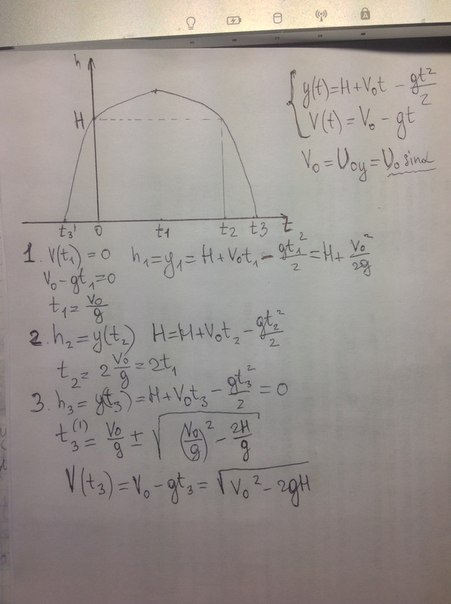 h
y(t)=H+V₀t - gt²/2
V(t)=V₀ - gt
V₀ = U₀y = U₀ sinα
H
t₃' 0 t₁ t₂ t₃ t
1. V(t₁) = 0 h₁=y₁= H+V₀t₁ - gt₁²/2 = H + V₀²/2g
V₀-gt₁=0
t₁= V₀/g
2. h₂=y(t₂) H=H+V₀t₂ - gt₂²/2
t₂= 2 V₀/g = 2t₁
3. h₃= y(t₃)=H+V₀t₃ - gt₃²/2 = 0
t₃⁽¹⁾= V₀/g ± √((V₀/g)² - 2H/g)
V(t₃)=V₀-gt₃= √(V₀²-2gH)